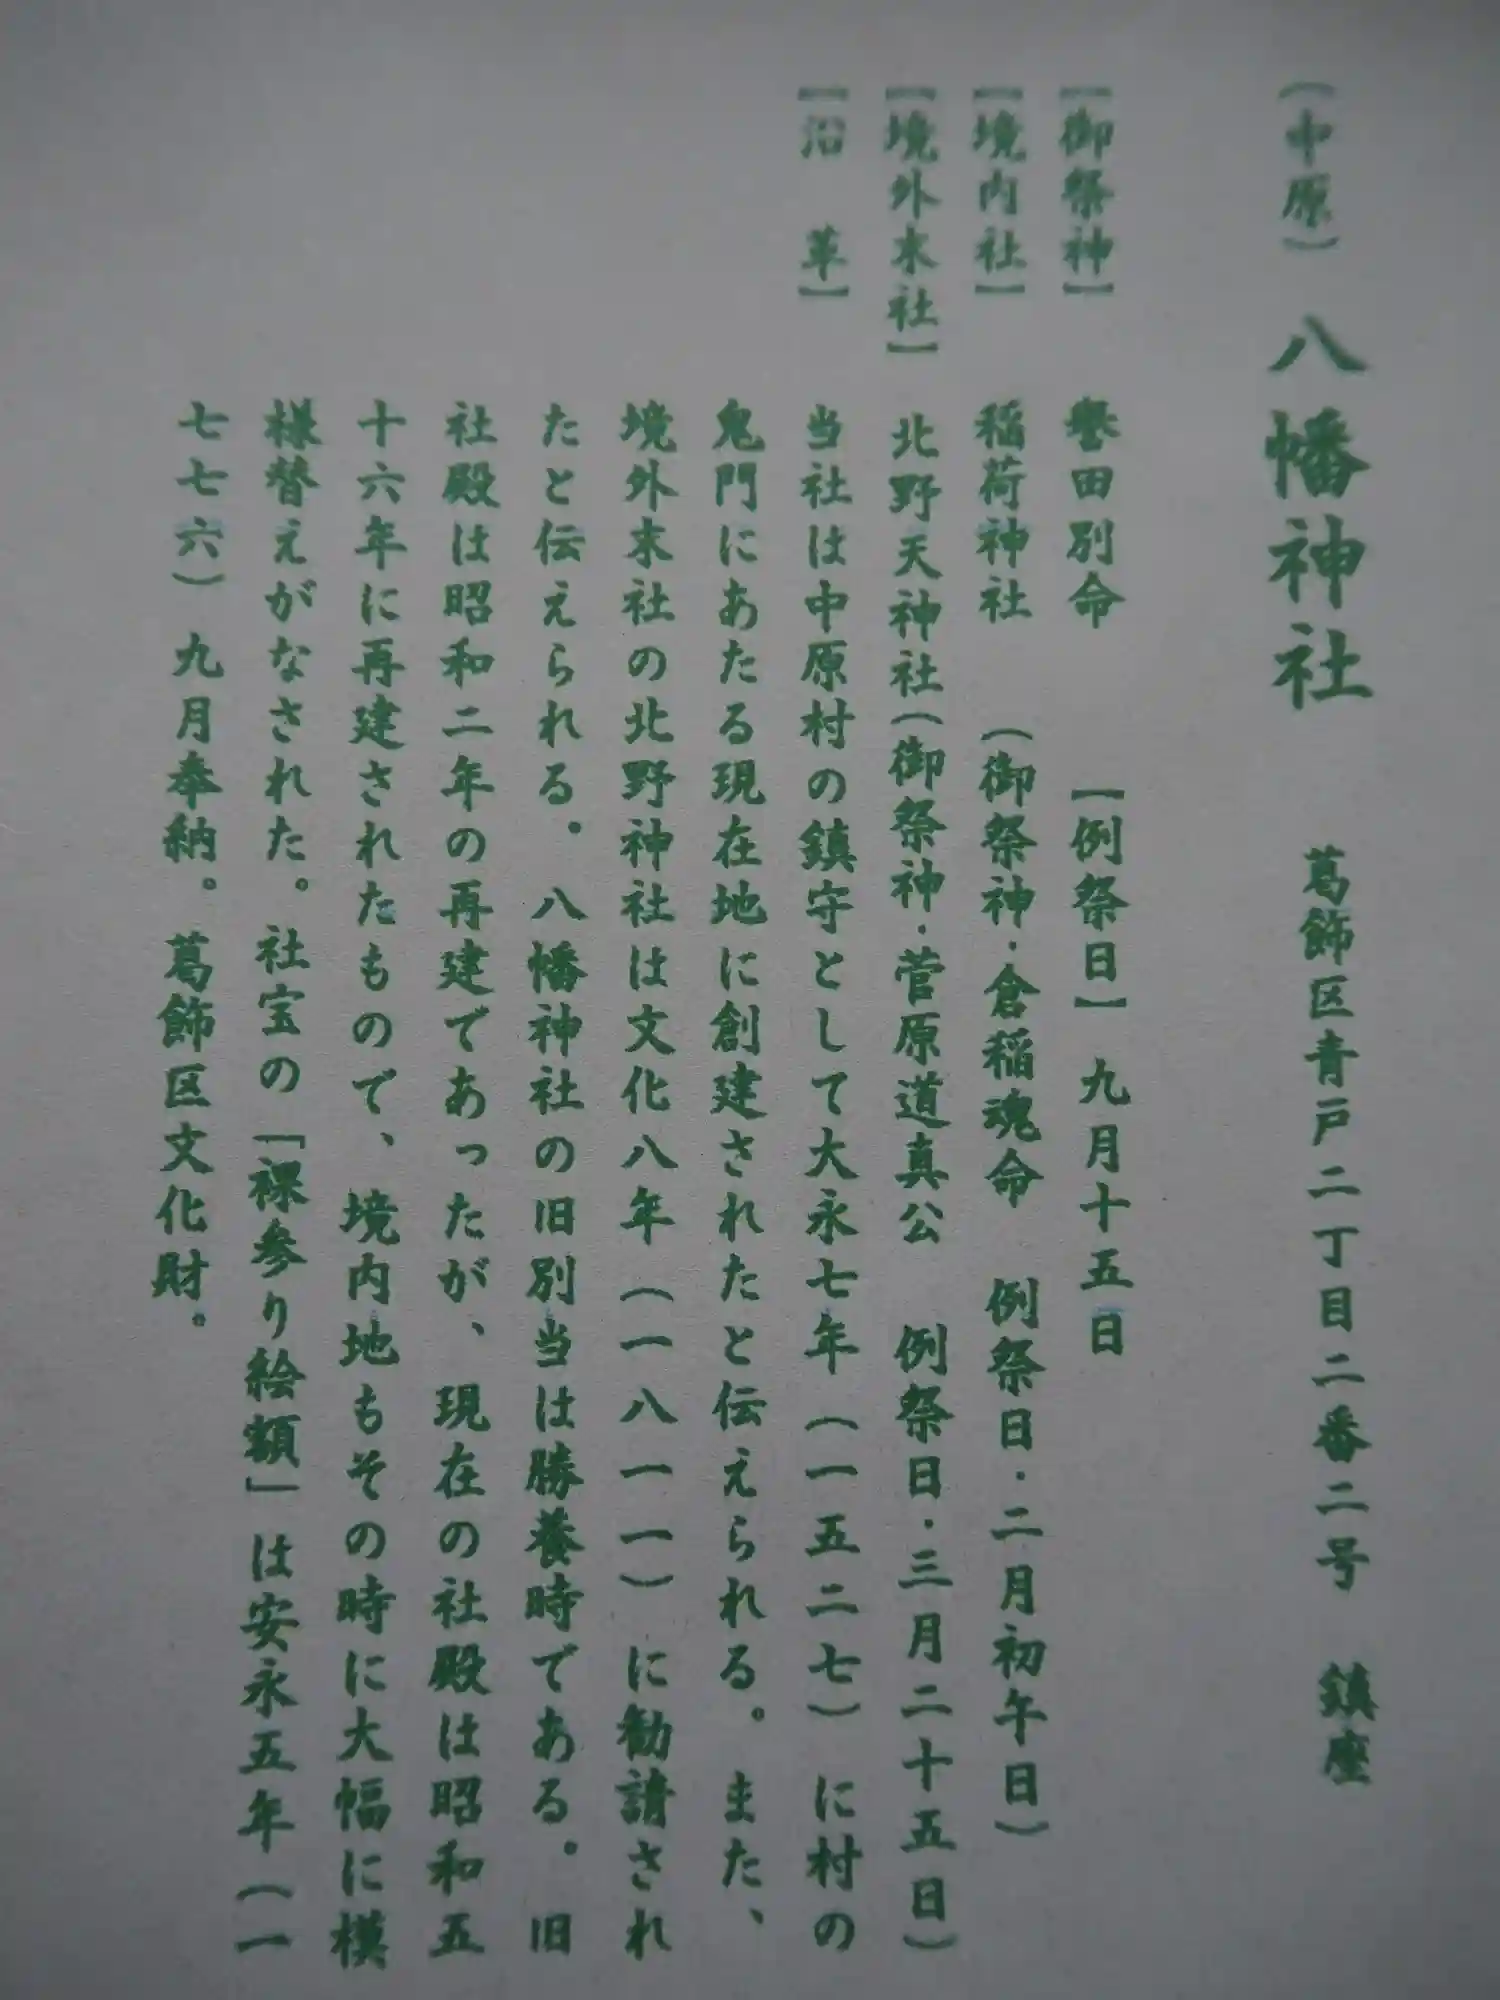 （中原）八幡神社　葛飾区青戸二丁目二番二号　鎮座
【御祭神】　誉田別命　【例祭日】　九月十五日
【境内社】　稲荷神社　（御祭神・倉稲魂命　例祭日・二月初午日）
【境外末社】　北野天神社（御祭神・菅原道真公　例祭日・三月二十五日）
【沿　革】　当社は中原村の鎮守として大永七年（一五二七）に村の
鬼門にあたる現在地に創建されたと伝えられる。また、
境外末社の北野神社は文化八年（一八一一）に勧請され
たと伝えられる。八幡神社の旧別当は勝養時である。旧
社殿は昭和二年の再建であったが、現在の社殿は昭和五
十六年に再建されたもので、境内地もその時に大幅に模
様替えがなされた。社宝の「裸参り絵額」は安永五年（一
七七六）九月奉納。葛飾区文化財。